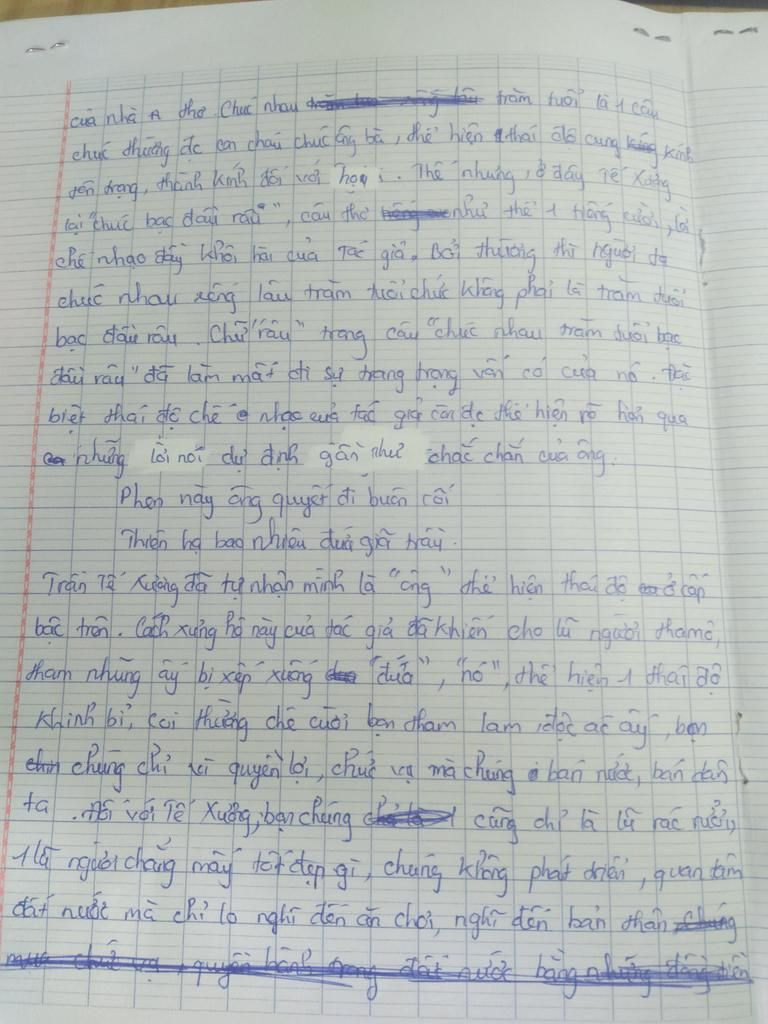 của nhà thơ. Chúc nhau trăm tuổi là 1 câu
chúc thường đc con cháu chúc ông bà, thể hiện 1 thái độ cung kính
tôn trọng, thành kính đối với họ. Thế nhưng, ở đây Tế Xương
lại "chúc bạc đầu râu", câu thơ như thể 1 tiếng cười, lời
chế nhạo đầy khôi hài của tác giả. Bởi thường thì người ta
chúc nhau sống lâu trăm tuổi chứ không phải là trăm tuổi
bạc đầu râu. Chữ "râu" trong câu "chúc nhau trăm tuổi bạc
đầu râu" đã làm mất đi sự trang trọng vốn có của nó. Đặc
biệt thái độ chế nhạo của tác giả còn đc thể hiện rõ hơn qua
những lời nói dự định gần như chắc chắn của ông.
Phen này ông quyết đi buôn cối
Thiên hạ bao nhiêu đứa giã trầu.
Trần Tế Xương đã tự nhận mình là "ông" thể hiện thái độ ở cấp
bậc trên. Cách xưng hô này của tác giả đã khiến cho lũ người tham ô,
tham nhũng ấy bị xếp xuống "đứa", "nó", thể hiện 1 thái độ
khinh bỉ, coi thường chê cười bọn tham lam, độc ác ấy, bọn
chúng chỉ vì quyền lợi, chức vụ mà chúng bán nước, bán dân
ta. Đối với Tế Xương, bọn chúng cũng chỉ là lũ rác rưởi,
1 lũ người chẳng mấy tốt đẹp gì, chúng không phát triển, quan tâm
đất nước mà chỉ lo nghĩ đến ăn chơi, nghĩ đến bản thân